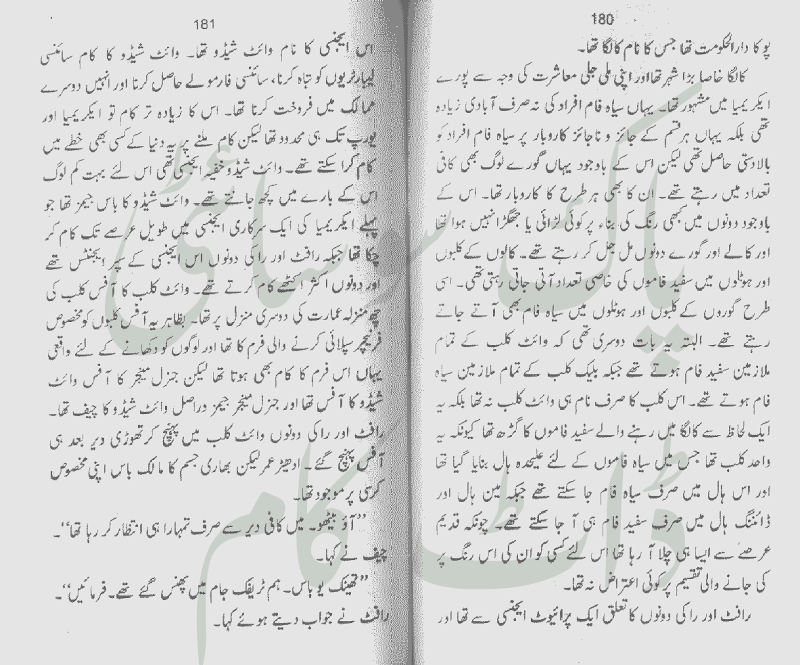 180
پو کا دارالحکومت تھا جس کا نام کالگا تھا۔
کالگا خاصا بڑا شہر تھا اور اپنی ملی جلی معاشرت کی وجہ سے پورے
ایکریمیا میں مشہور تھا۔ یہاں سیاہ فام افراد کی نہ صرف آبادی زیادہ
تھی بلکہ یہاں ہر قسم کے جائز و ناجائز کاروبار پر سیاہ فام افراد کو
بالادستی حاصل تھی لیکن اس کے باوجود یہاں گورے لوگ بھی کافی
تعداد میں رہتے تھے۔ ان کا بھی ہر طرح کا کاروبار تھا۔ اس کے
باوجود دونوں میں کبھی رنگ کی بناء پر کوئی لڑائی یا جھگڑا نہیں ہوا تھا
اور کالے اور گورے دونوں مل جل کر رہتے تھے۔ کالوں کے کلبوں
اور ہوٹلوں میں سفید فاموں کی خاصی تعداد آتی جاتی رہتی تھی۔ اسی
طرح گوروں کے کلبوں اور ہوٹلوں میں سیاہ فام بھی آتے جاتے
رہتے تھے۔ البتہ یہ بات دوسری تھی کہ وائٹ کلب کے تمام
ملازمین سفید فام ہوتے تھے جبکہ بلیک کلب کے تمام ملازمین سیاہ
فام ہوتے تھے۔ اس کلب کا صرف نام ہی وائٹ کلب نہ تھا بلکہ یہ
ایک لحاظ سے کالگا میں رہنے والے سفید فاموں کا گڑھ تھا کیونکہ یہ
واحد کلب تھا جس میں سیاہ فاموں کے لئے علیحدہ ہال بنایا گیا تھا
اور اس ہال میں صرف سیاہ فام جا سکتے تھے جبکہ مین ہال اور
ڈائننگ ہال میں صرف سفید فام ہی آ جا سکتے تھے۔ چونکہ قدیم
عرصے سے ایسا ہی چلا آ رہا تھا اس لئے کسی کو ان کی اس رنگ پر
کی جانے والی تقسیم پر کوئی اعتراض نہ تھا۔
رافٹ اور راکی دونوں کا تعلق ایک پرائیوٹ ایجنسی سے تھا اور
181
اس ایجنسی کا نام وائٹ شیڈو تھا۔ وائٹ شیڈو کا کام سائنسی
لیبارٹریوں کو تباہ کرنا، سائنسی فارمولے حاصل کرنا اور انہیں دوسرے
ممالک میں فروخت کرنا تھا۔ اس کا زیادہ تر کام تو ایکریمیا اور
یورپ تک ہی محدود تھا لیکن کام ملنے پر یہ دنیا کے کسی بھی خطے میں
کام کرا سکتے تھے۔ وائٹ شیڈو خفیہ ایجنسی تھی اس لئے بہت کم لوگ
اس کے بارے میں کچھ جانتے تھے۔ وائٹ شیڈو کا باس جیمز تھا جو
پہلے ایکریمیا کی ایک سرکاری ایجنسی میں طویل عرصے تک کام کر
چکا تھا جبکہ رافٹ اور راکی دونوں اس ایجنسی کے سپر ایجنٹس تھے
اور دونوں اکثر اکٹھے کام کرتے تھے۔ وائٹ کلب کا آفس کلب کی
چھ منزلہ عمارت کی دوسری منزل پر تھا۔ بظاہر یہ آفس کلبوں کو مخصوص
فرنیچر سپلائی کرنے والی فرم کا تھا اور لوگوں کو دکھانے کے لئے واقعی
یہاں اس فرم کا کام بھی ہوتا تھا لیکن جنرل مینجر کا آفس وائٹ
شیڈو کا آفس تھا اور جنرل مینجر جیمز دراصل وائٹ شیڈو کا چیف تھا۔
رافٹ اور راکی دونوں وائٹ کلب میں پہنچ کر تھوڑی دیر بعد ہی
آفس پہنچ گئے۔ ادھیڑ عمر لیکن بھاری جسم کا مالک باس اپنی مخصوص
کرسی پر موجود تھا۔
”آؤ بیٹھو۔ میں کافی دیر سے صرف تمہارا ہی انتظار کر رہا تھا“۔
چیف نے کہا۔
”تھینک یو باس۔ ہم ٹریفک جام میں پھنس گئے تھے۔ فرمائیں“۔
رافٹ نے جواب دیتے ہوئے کہا۔
پاک سوسائٹی
ڈاٹ کام